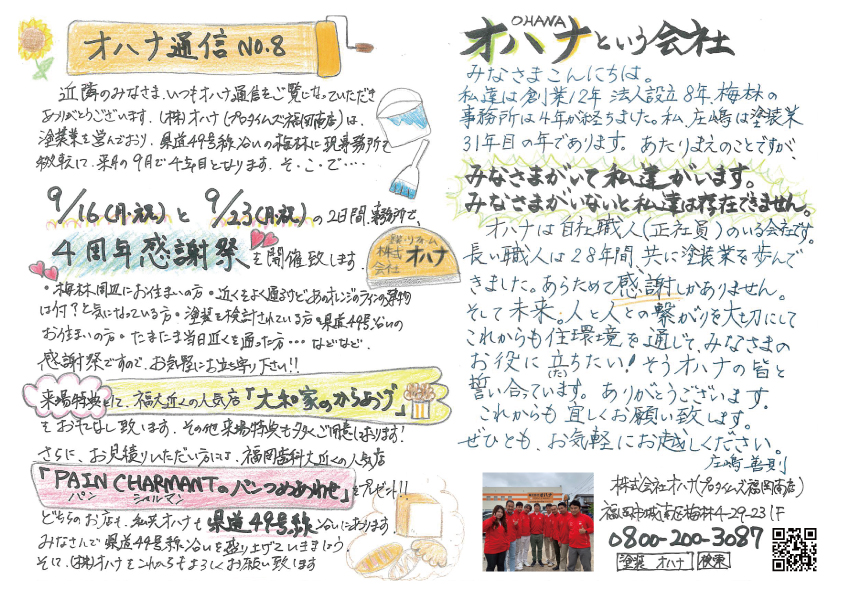 オハナ通信 NO.8
近隣のみなさま、いつもオハナ通信をご覧になっていただき
ありがとうございます。(株)オハナ(プロタイムズ福岡南店)は、
塗装業を営んでおり、県道49号線沿いの梅林に現事務所を
移転して、来月の9月で4年目となります。そ・こ・で・・・
9/16(月・祝)と9/23(月・祝)の2日間、事務所で、
4周年感謝祭を開催致します。
塗装・リフォーム
株式会社 オハナ
・梅林周辺にお住まいの方・近くをよく通るけどあのオレンジのラインの建物
は何？と気になっている方・塗装を検討されている方・県道49号沿いの
お住まいの方・たまたま当日近くを通った方・・・などなど、
感謝祭ですので、お気軽にお立ち寄り下さい!!
来場特典として、福大近くの人気店「大和家のからあげ」
をおもてなし致します。その他来場特典も多くご用意しております!
さらに、お見積りしたい方には、福岡歯科大近くの人気店
「PAIN CHARMANTのパンつめあわせ」をプレゼント!!
パン シャルマン
どちらのお店も、私共オハナも県道49号線沿いにあります。
みなさんで県道49号線沿いを盛り上げていきましょう。
そして、(株)オハナをこれからもよろしくお願い致します
OHANA
オハナという会社
みなさまこんにちは。
私達は創業12年 法人設立8年、梅林の
事務所は4年が経ちました。私、庄嶋は塗装業
31年目の年であります。あたりまえのことですが、
みなさまがいて私達がいます。
みなさまがいないと私達は存在できません。
オハナは自社職人(正社員)のいる会社です。
長い職人は28年間、共に塗装業を歩んで
きました。あらためて感謝しかありません。
そして未来。人と人との繋がりを大切にして
これからも住環境を通じて、みなさまの
お役に立ちたい！そうオハナの皆と
(た)
誓い合っています。ありがとうございます。
これからも宜しくお願い致します。
ぜひとも、お気軽にお越しください。
庄嶋 善則
株式会社オハナ(プロタイムズ福岡南店)
福岡市城南区梅林4-29-23 1F
0800-200-3087
塗装 オハナ 検索